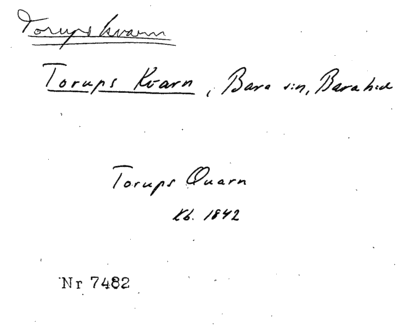 Torups kvarn
Torups Kvarn, Bara sn, Bara hd
Torups Quarn
Kb. 1842
Nr 7482